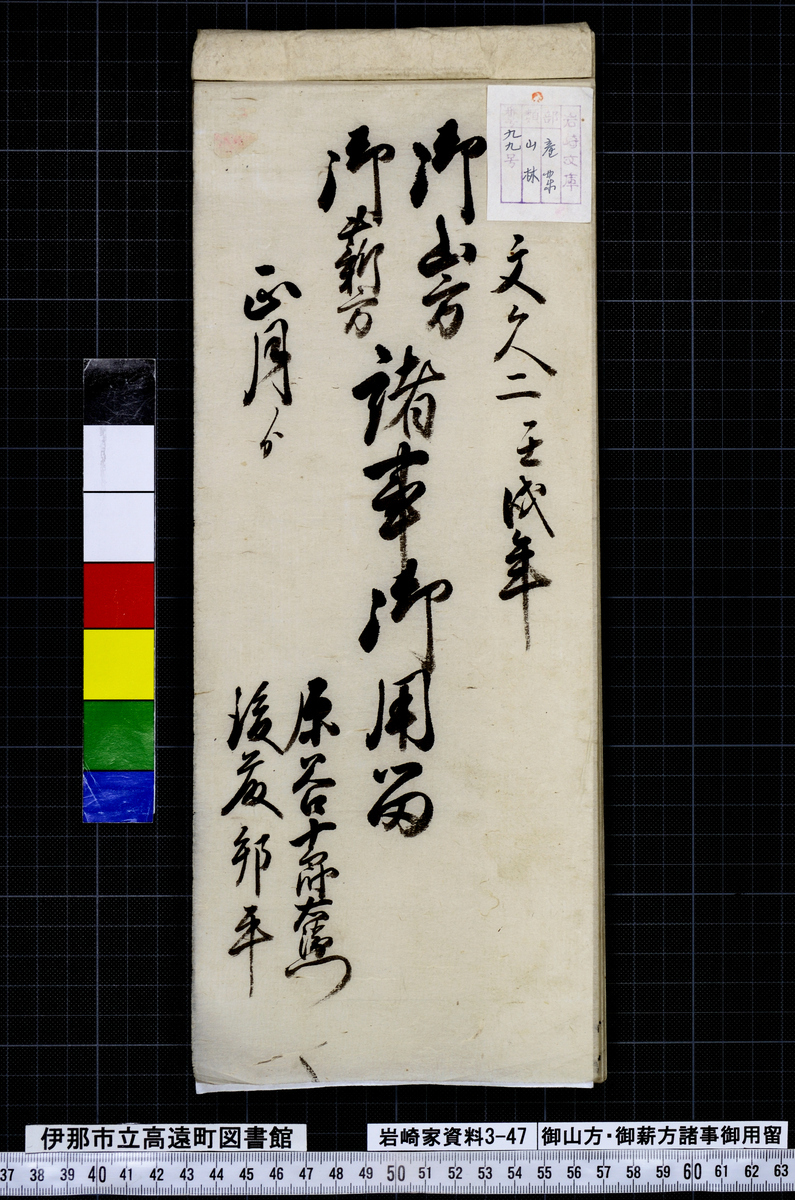 岩崎文庫
部 産業
類 山林
第 九九号
文久二壬戌年
御山方
御薪方
諸事御用留
正月ゟ
原谷十郎右衛門
後藤邦平
伊那市立高遠町図書館
岩崎家資料3-47
御山方・御薪方諸事御用留
37 38 39 40 41 42 43 44 45 46 47 48 49 50 51 52 53 54 55 56 57 58 59 60 61 62 63